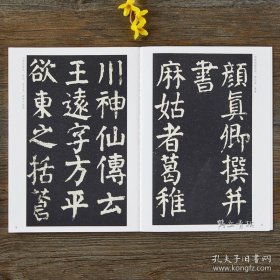 顏眞卿撰并
書
麻姑者葛稚
川神仙傳云
王遠字方平
欲東之括蒼
孔夫子旧书网